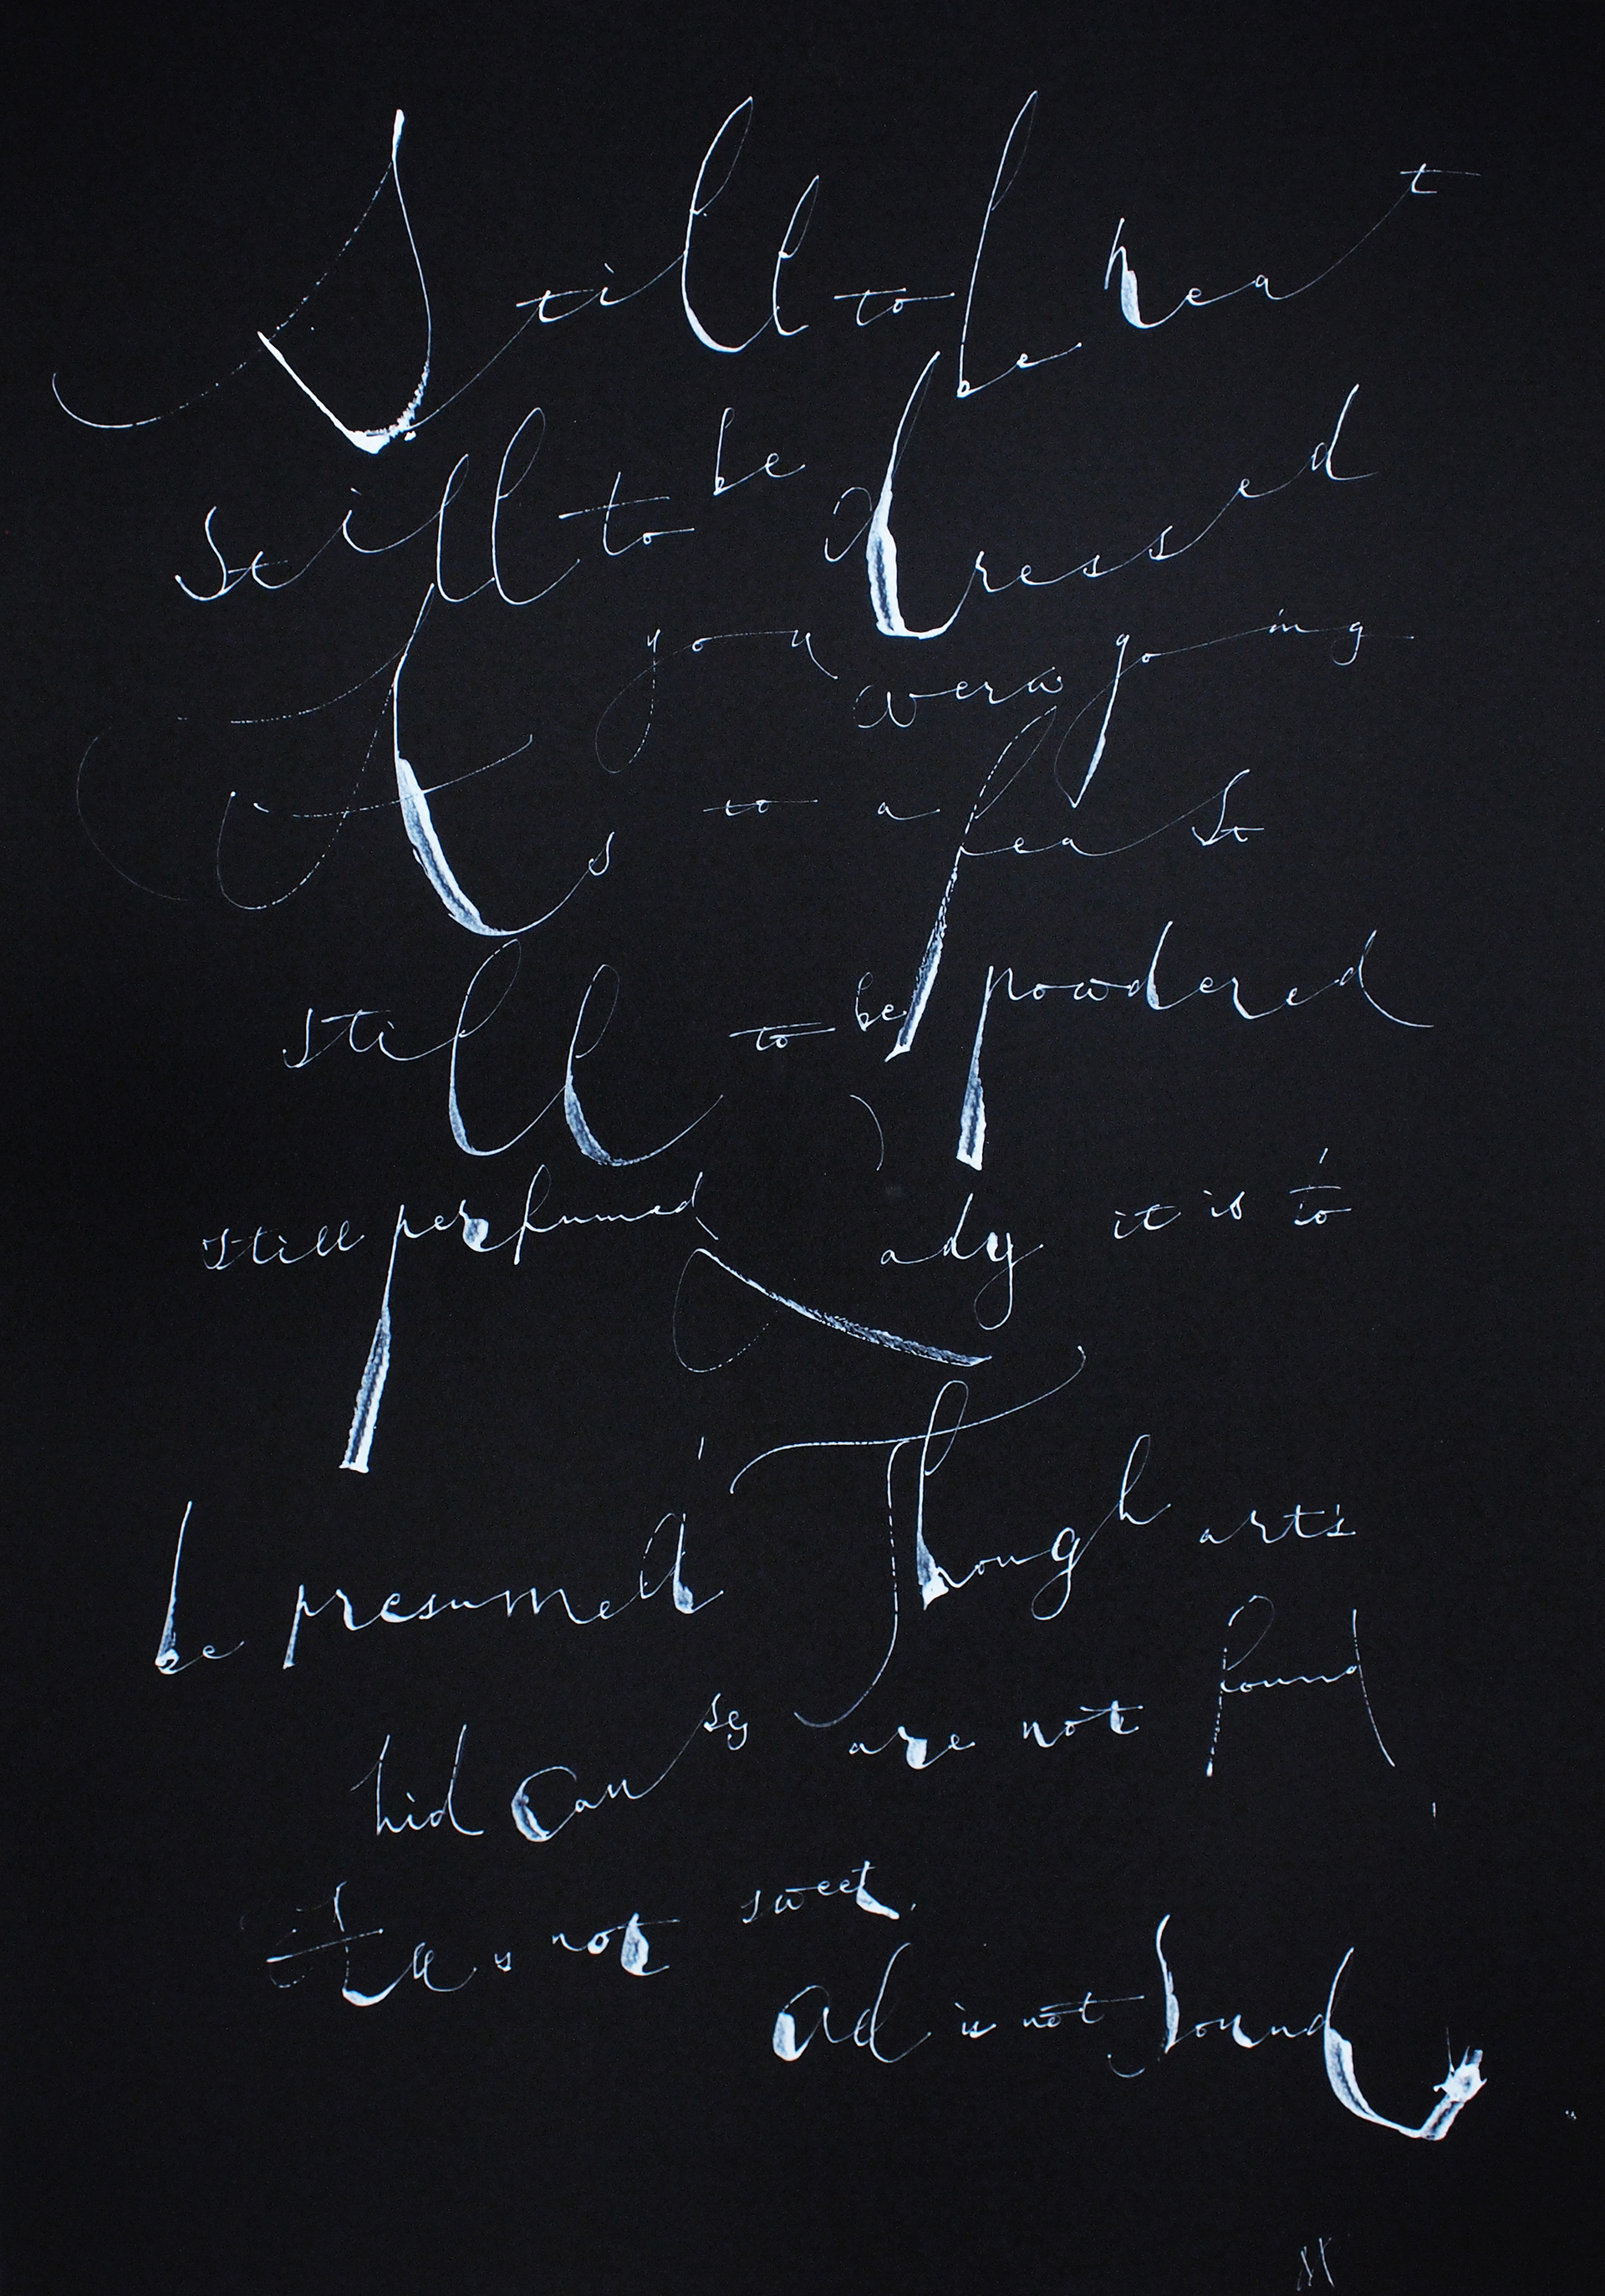 Still to be neat
still to be dressed
As you were going
to a feast
still to be powdered
still perfumed Lady it is to
be presumed Though art's
hid causes are not found
All is not sweet,
all is not sound